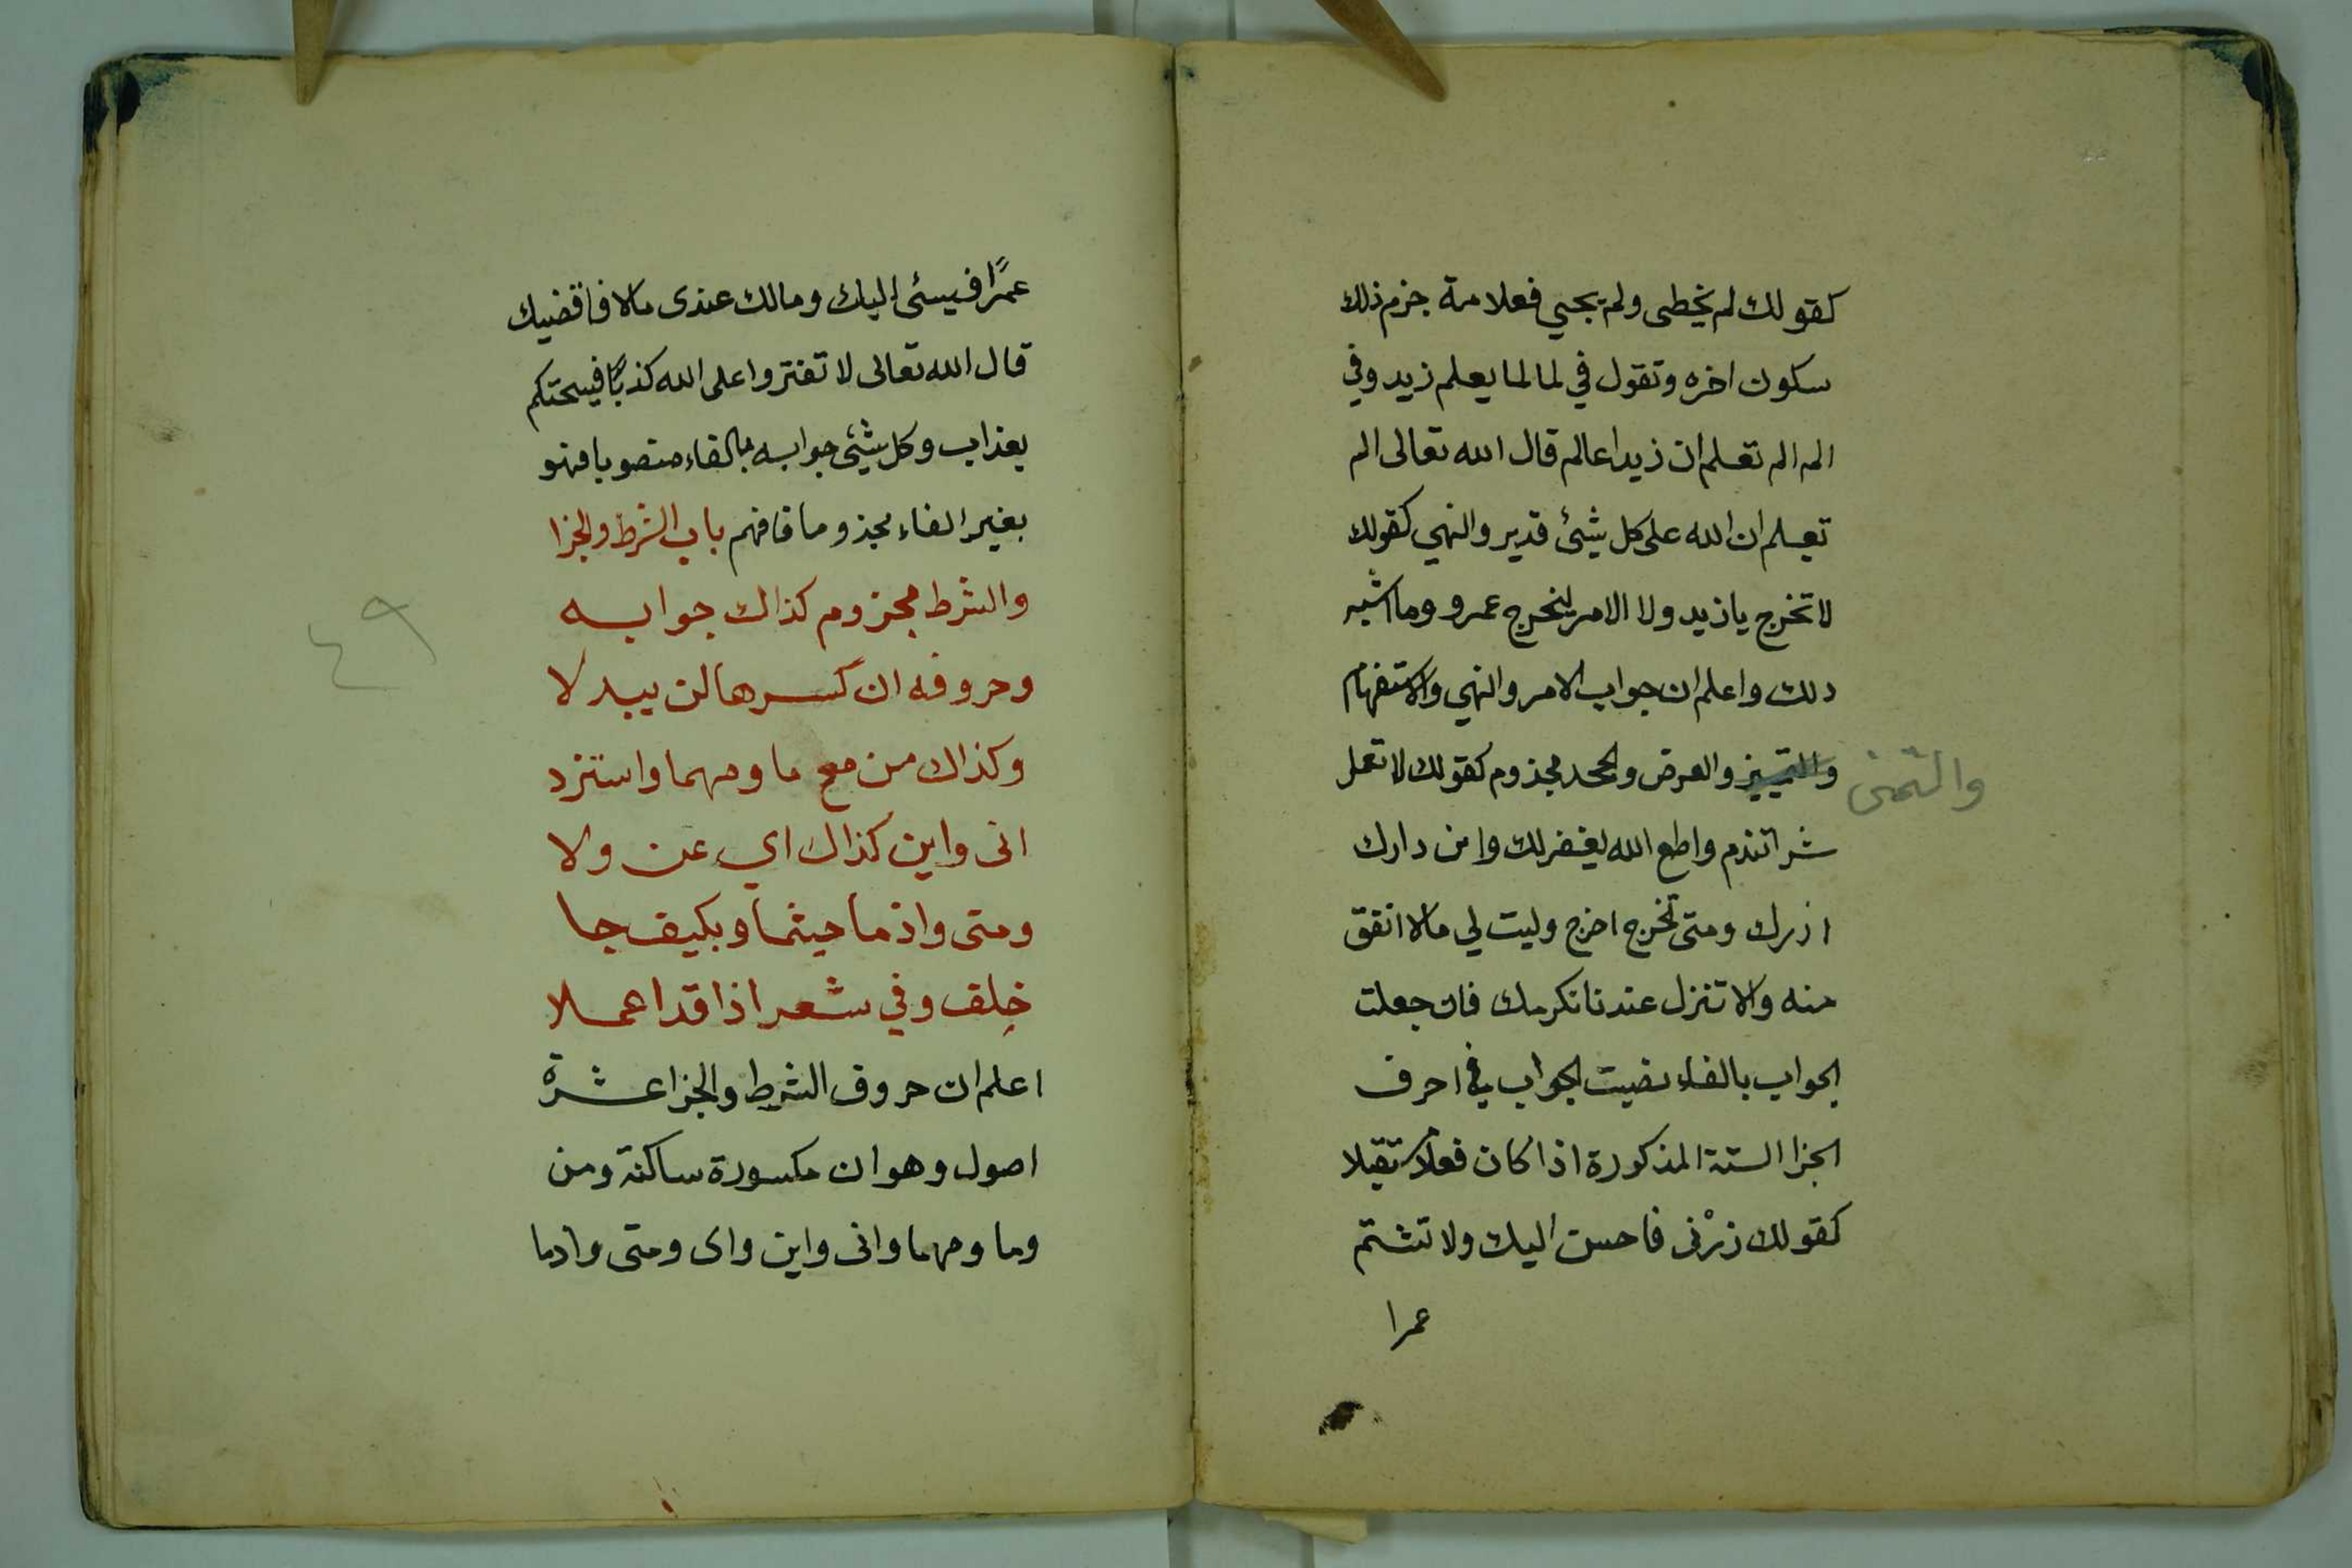 كقولك لم يخطى ولم يجيي فعلامة جزم ذلك
سكون اخره وتقول في لما لما يعلم زيد وفي
الم الم تعلم ان زيدا عالم قال الله تعالى الم
تعلم ان الله على كل شيئ قدير والنهي كقولك
لا تخرج يا زيد ولا الامر ليخرج عمرو وما اشبه
ذلك واعلم ان جواب الامر والنهي والاستفهام
والتمييز والعرض والجحد مجذوم كقولك لا تعمل
والتمني
شرا تندم واطع الله يغفر لك واين دارك
ازرك ومتى تخرج اخرج وليت لي مالا انفق
منه والا تنزل عندنا نكرمك فان جعلت
الجواب بالفاء نصبت الجواب في احرف
الجزا الستة المذكورة اذا كان فعلا
كقولك زرْنى فاحسن اليك ولا تشتم
عمرا
عمرًا فيسئى اليك ومالك عندى مالا فاقضيك
قال الله تعالى لا تفتروا على الله كذبًا فيسحتكم
بعذاب وكل شيئ جوابه بالفاء منصوبا فهو
بغير الفاء مجذوما فافهم باب الشرط والجزا
والشرط مجزوم كذاك جوابه
وحروفه ان كسرها لن يبدلا
وكذاك من مع ما ومهما واستزد
انى واين كذاك اي عن ولا
ومتى واذما حيثما وبكيف جا
خِلف وفي شعر اذا قد اعملا
اعلم ان حروف الشرط والجزا عشرة
اصول وهو ان مكسورة ساكنة ومن
وما ومهما وانى واين واى ومتى واذما
٤٩